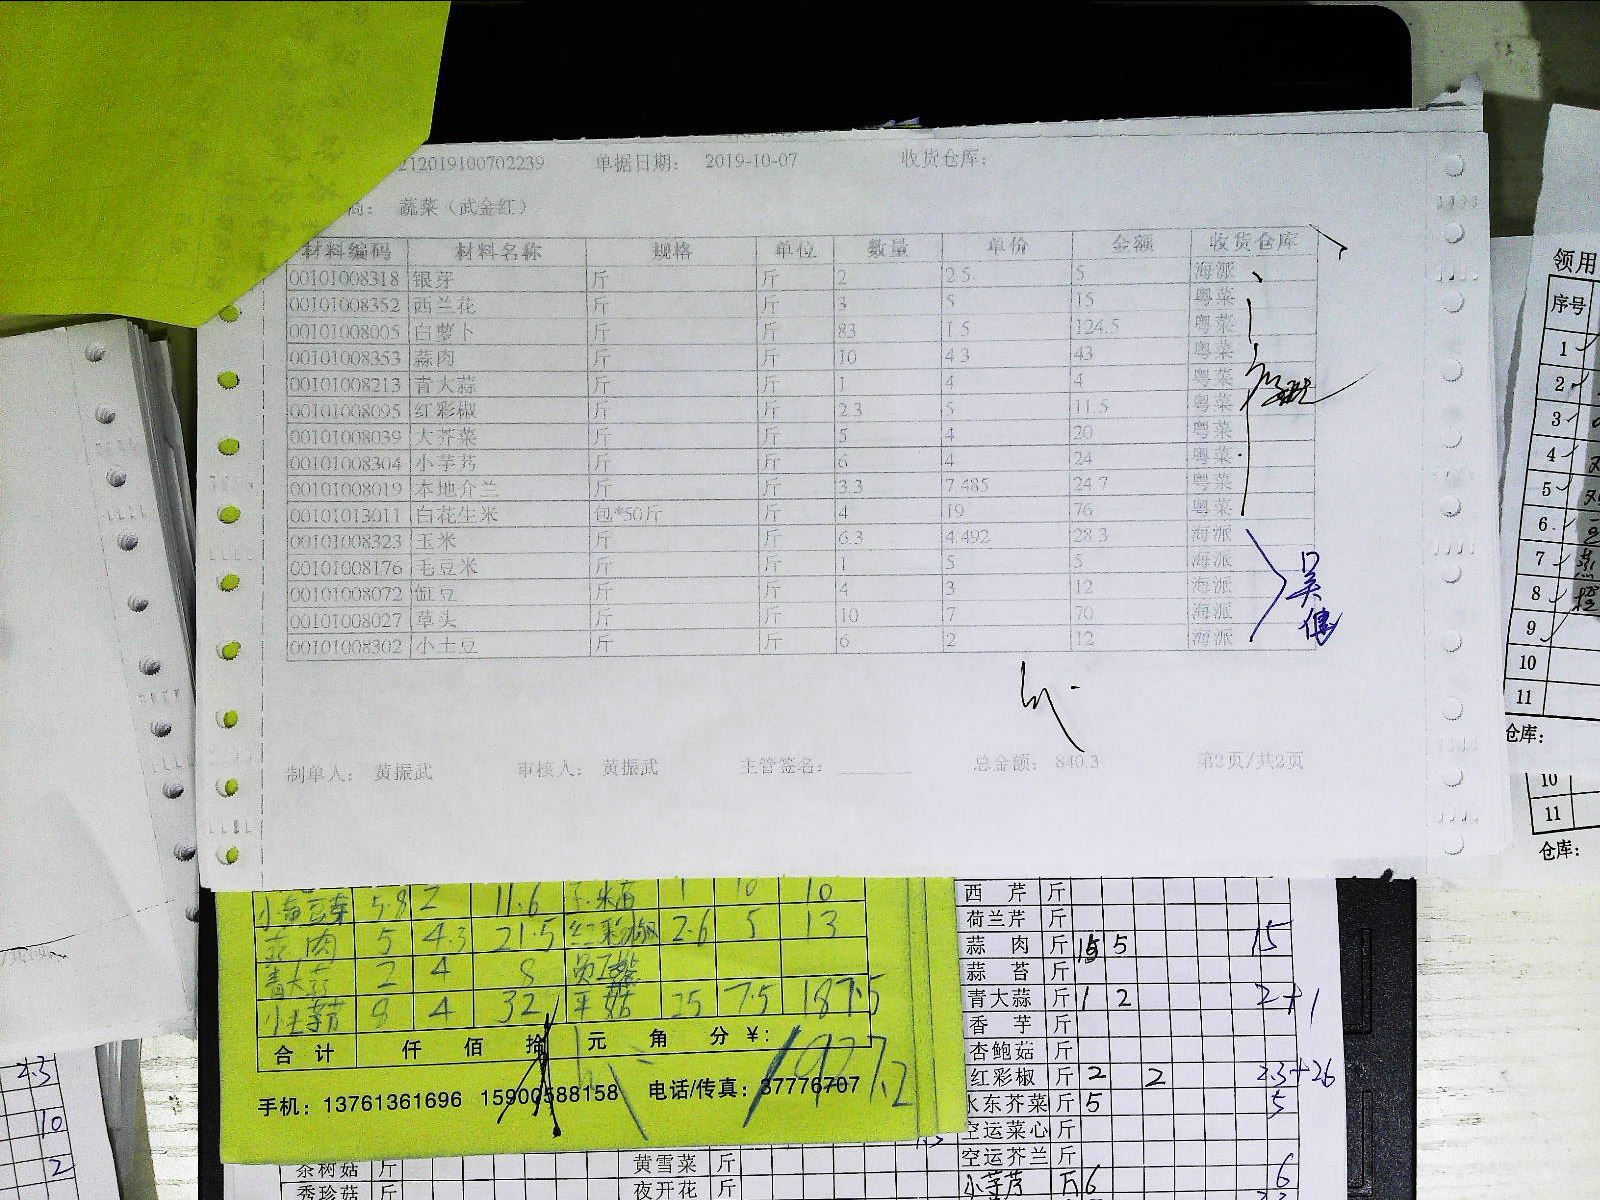 212019100702239 单据日期： 2019-10-07 收货仓库：
商： 蔬菜（武金红）
材料编码 材料名称 规格 单位 数量 单价 金额 收货仓库
00101008318 银芽 斤 斤 2 2.5 5 海派
00101008352 西兰花 斤 斤 3 5 15 粤菜
00101008005 白萝卜 斤 斤 83 1.5 124.5 粤菜
00101008353 蒜肉 斤 斤 10 4.3 43 粤菜
00101008213 青大蒜 斤 斤 1 4 4 粤菜
00101008095 红彩椒 斤 斤 2.3 5 11.5 粤菜
00101008039 大芥菜 斤 斤 5 4 20 粤菜
00101008304 小芋艿 斤 斤 6 4 24 粤菜
00101008019 本地介兰 斤 斤 3.3 7.485 24.7 粤菜
00101013011 白花生米 包*50斤 斤 4 19 76 粤菜
00101008323 玉米 斤 斤 6.3 4.492 28.3 海派
00101008176 毛豆米 斤 斤 1 5 5 海派
00101008072 缸豆 斤 斤 4 3 12 海派
00101008027 草头 斤 斤 10 7 70 海派
00101008302 小土豆 斤 斤 6 2 12 海派
吴健
制单人： 黄振武 审核人： 黄振武 主管签名： 总金额： 840.3 第2页/共2页
5.8 2 11.6 1 10 10
肉 5 4.3 21.5 红彩椒 2.6 5 13
青大蒜 2 4 8
8 4 32 平菇 25 7.5 187.5
合 计 仟 佰 拾 元 角 分 ¥：
1927.2
手机：13761361696 15900588158 电话/传真：37776707
西 芹 斤
荷兰芹 斤
蒜 肉 斤 5 15
蒜 苔 斤
青大蒜 斤 1 2 2+1
香 芋 斤
杏鲍菇 斤
红彩椒 斤 2 2 2.3+26
水东芥菜 斤 5 5
空运菜心 斤
空运芥兰 斤
小芋艿 斤 6 6
茶树菇 斤 黄雪菜 斤
秀珍菇 斤 夜开花 斤
领用
序号
1
2
3
4
5
6
7
8
9
10
11
仓库：
10
11
仓库：
2.3
10
2